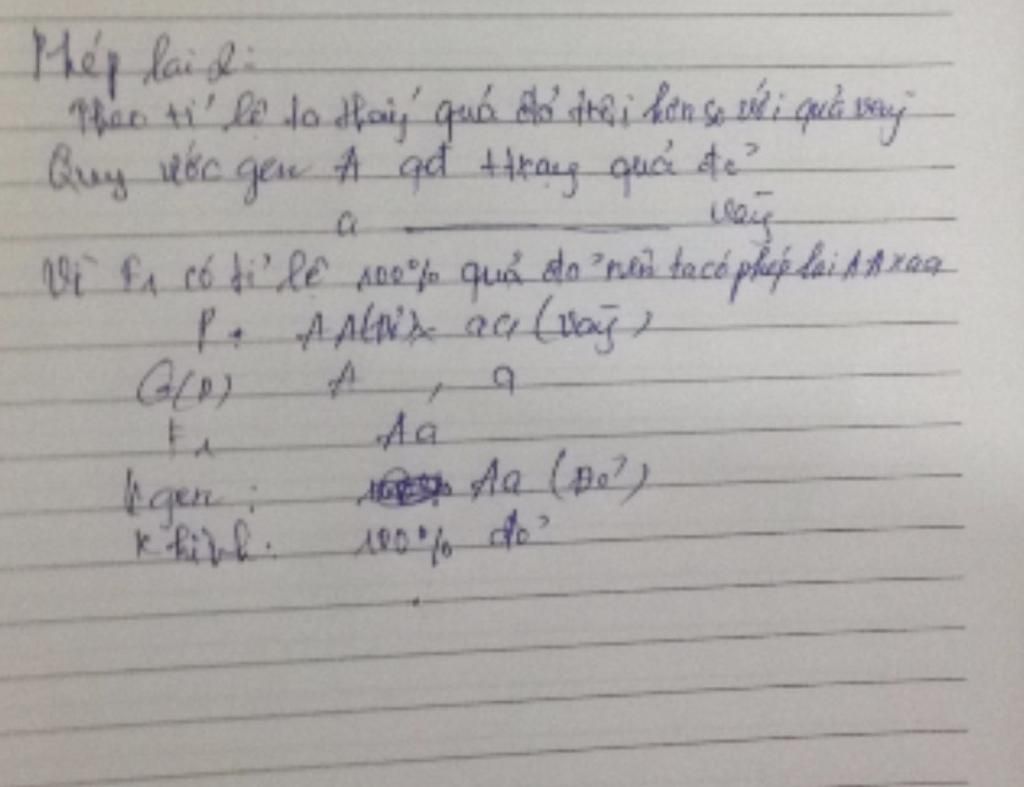 Phép lai 2:
Theo tỉ lệ ta thấy quả đỏ trội hơn so với quả vàng
Quy ước gen A qđ ttrạng quả đỏ
a ———— vàng
Vì F1 có tỉ lệ 100% quả đỏ nên ta có phép lai AA x aa
P: AA (Đỏ) x aa (vàng)
G(P) A , a
F1 Aa
K gen: Aa (Đỏ)
K hình: 100% đỏ